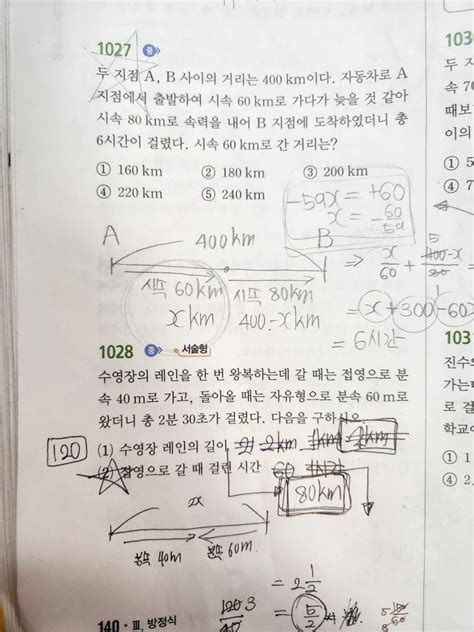 1027 중
두 지점 A, B 사이의 거리는 400 km이다. 자동차로 A
지점에서 출발하여 시속 60 km로 가다가 늦을 것 같아
시속 80 km로 속력을 내어 B 지점에 도착하였더니 총
6시간이 걸렸다. 시속 60 km로 간 거리는?
① 160 km ② 180 km ③ 200 km
④ 220 km ⑤ 240 km
-59x = +60
x = -60/59
A 400km B
시속 60km 시속 80km
x km 400-x km
⇒ x/60 + 400-x/80
5
= x+300-60x
= 6시간
1028 중 서술형
수영장의 레인을 한 번 왕복하는데 갈 때는 접영으로 분
속 40 m로 가고, 돌아올 때는 자유형으로 분속 60 m로
왔더니 총 2분 30초가 걸렸다. 다음을 구하시오.
(1) 수영장 레인의 길이
120
(2) 접영으로 갈 때 걸린 시간 60
80km
2x
분속 40m 분속 60m.
= 2 1/2
= 5/2
140 • Ⅲ. 방정식
103
두 지
속 70
때보
이의
① 5
④ 7
103
진수의
가는데
로 걸
학교에
① 1
④ 2